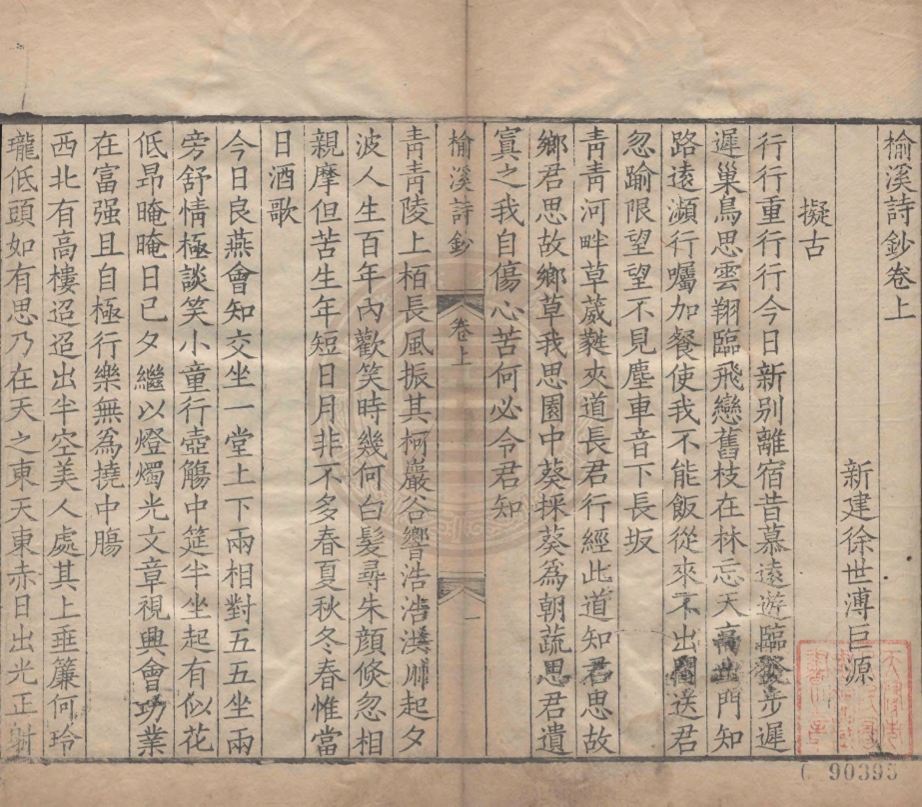 榆溪詩鈔卷上
新建徐世溥巨源
擬古
行行重行行今日新别離宿昔慕遠遊臨發步遲
遲巢鳥思雲翔臨飛戀舊枝在林忘天高出門知
路遠瀕行囑加餐使我不能飯從來不出閫送君
忽踰限望望不見塵車音下長坂
靑靑河畔草葳蕤夾道長君行經此道知君思故
鄉君思故鄉草我思園中葵採葵爲朝蔬思君遺
寘之我自傷心苦何必令君知
榆溪詩鈔 卷上 一
靑靑陵上栢長風振其柯巖谷響浩浩澳川起夕
波人生百年內歡笑時幾何白髮尋朱顔倐忽相
親摩但苦生年短日月非不多春夏秋冬春惟當
日酒歌
今日良燕會知交坐一堂上下兩相對五五坐兩
旁舒情極談笑小童行壺觴中筵半坐起有似花
低昂晻晻日已夕繼以燈燭光文章視興會功業
在富强且自極行樂無爲撓中腸
西北有高樓迢迢出半空美人處其上垂簾何玲
瓏低頭如有思乃在天之東天東赤日出光正射
C 90395